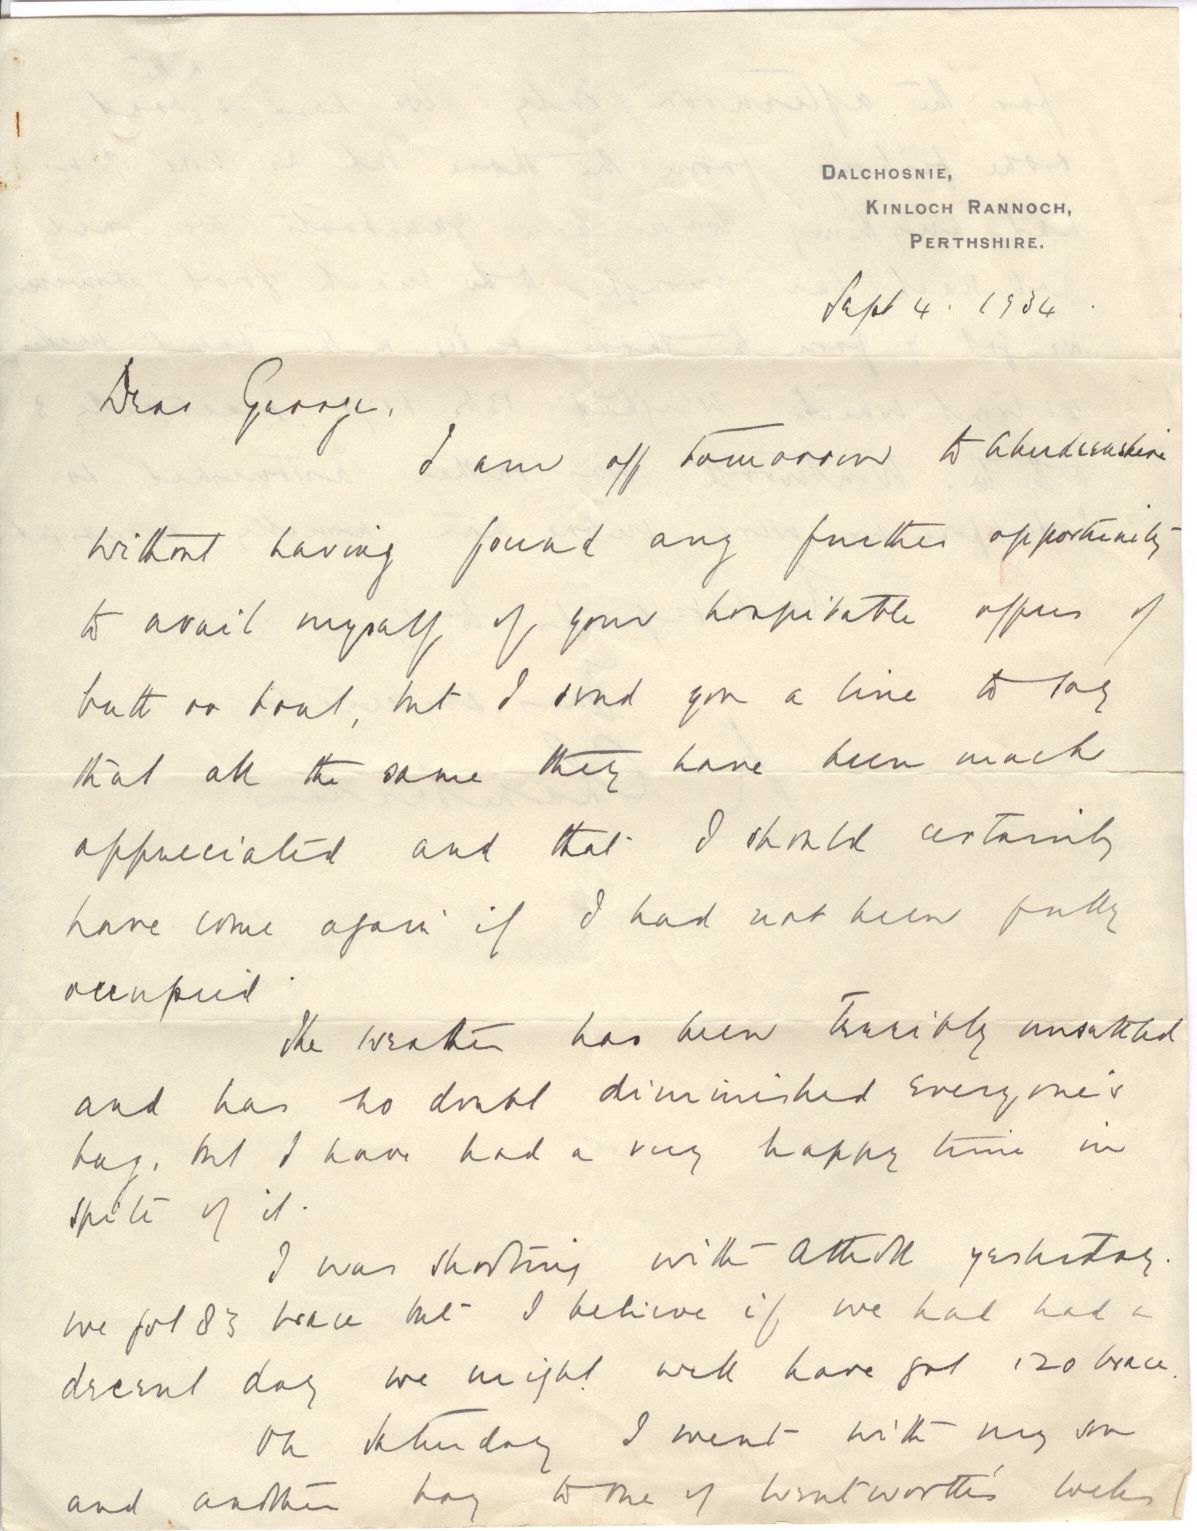 DALCHOSNIE,
KINLOCH RANNOCH,
PERTHSHIRE.
Sept 4. 1934.
Dear George,
I am off tomorrow to Aberdeenshire
without having found any further opportunity
to avail myself of your hospitable offers of
butt or boat, but I send you a line to say
that all the same they have been much
appreciated and that I should certainly
have come again if I had not been fully
occupied.
The weather has been terribly unsettled
and has no doubt diminished everyone's
bag, but I have had a very happy time in
spite of it.
I was shooting with Atholl yesterday.
we got 83 brace but I believe if we had had a
decent day we might well have got 120 brace.
On Saturday I went with my son
and another boy to one of Wentworth's lochs